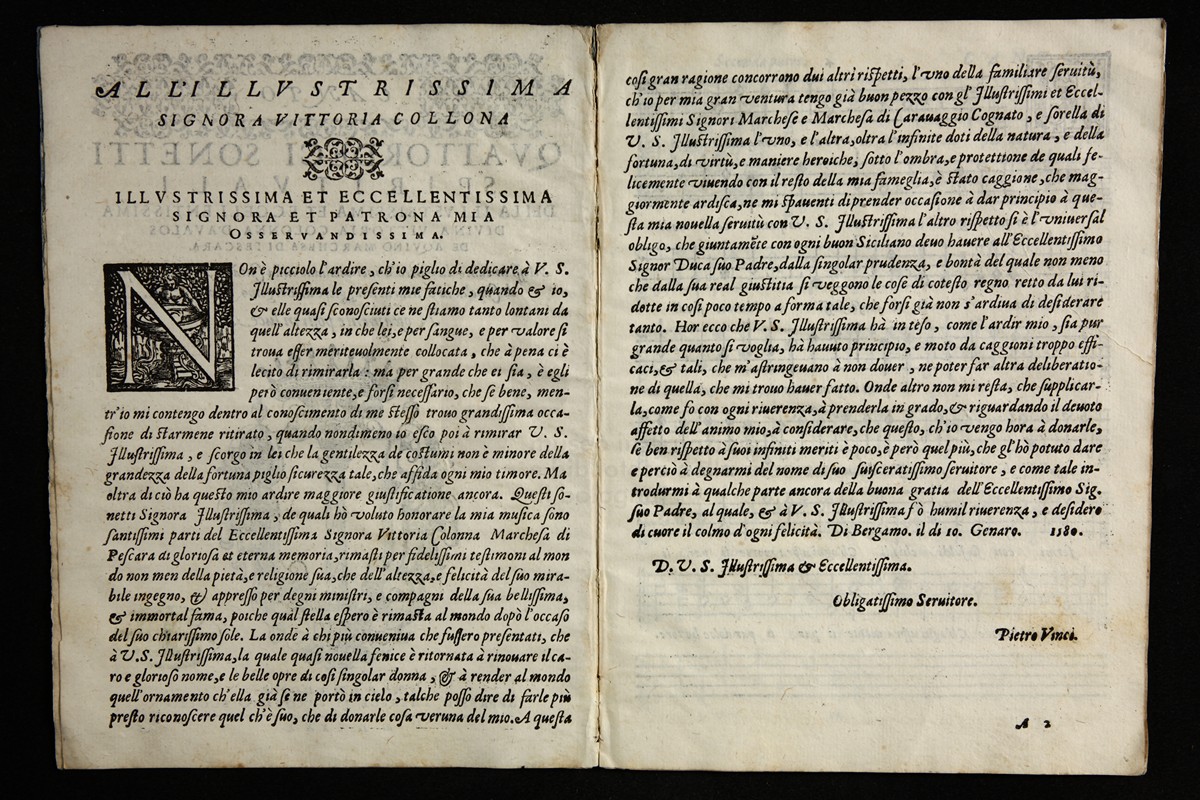 ALL'ILLVSTRISSIMA
SIGNORA VITTORIA COLLONA
ILLVSTRISSIMA ET ECCELLENTISSIMA
SIGNORA ET PATRONA MIA
OSSERVANDISSIMA.
NOn è picciolo l'ardire, ch'io piglio di dedicare à V. S.
Jllustrissima le presenti mie fatiche, quando & io,
& elle quasi sconosciuti ce ne stiamo tanto lontani da
quell'altezza, in che lei, e per sangue, e per valore si
troua esser meriteuolmente collocata, che à pena ci è
lecito di rimirarla: ma per grande che ei sia, è egli
però conueniente, e forsi necessario, che se bene, men-
tr'io mi contengo dentro al conoscimento di me stesso trouo grandissima occa-
sione di starmene ritirato, quando nondimeno io esco poi à rimirar V. S.
Jllustrissima, e scorgo in lei che la gentilezza de costumi non è minore della
grandezza della fortuna piglio sicurezza tale, che affida ogni mio timore. Ma
oltra di ciò ha questo mio ardire maggiore giustificatione ancora. Questi so-
netti Signora Jllustrissima, de quali hò voluto honorare la mia musica sono
santissimi parti del Eccellentissima Signora Vittoria Colonna Marchesa di
Pescara di gloriosa et eterna memoria, rimasti per fidelissimi testimoni al mon
do non men della pietà, e religione sua, che dell'altezza, e felicità del suo mira-
bile ingegno, & appresso per degni ministri, e compagni della sua bellissima,
& immortal fama, poiche qual stella espero è rimasta al mondo dopò l'occaso
del suo chiarissimo sole. La onde à chi più conueniua che fussero presentati, che
à V.S. Jllustrissima, la quale quasi nouella fenice è ritornata à rinouare il ca-
ro e glorioso nome, e le belle opre di così singolar donna, & à render al mondo
quell'ornamento ch'ella già se ne portò in cielo, talche posso dire di farle più
presto riconoscere quel ch'è suo, che di donarle cosa veruna del mio. A questa
così gran ragione concorrono dui altri rispetti, l'vno della familiare seruitù,
ch'io per mia gran ventura tengo già buon pezzo con gl'Jllustrissimi et Eccel-
lentissimi Signori Marchese e Marchesa di Carauaggio Cognato, e sorella di
V. S. Jllustrissima l'vno, e l'altra, oltra l'infinite doti della natura, e della
fortuna, di virtù, e maniere heroiche, sotto l'ombra, e protettione de quali fe-
licemente viuendo con il resto della mia fameglia, è stato caggione, che mag-
giormente ardisca, ne mi spauenti di prender occasione à dar principio à que-
sta mia nouella seruitù con V. S. Jllustrissima l'altro rispetto si è l'vniuersal
obligo, che giuntamẽte con ogni buon Siciliano deuo hauere all'Eccellentissimo
Signor Duca suo Padre, dalla singolar prudenza, e bontà del quale non meno
che dalla sua real giustitia si veggono le cose di cotesto regno retto da lui ri-
dotte in così poco tempo a forma tale, che forsi già non s'ardiua di desiderare
tanto. Hor ecco che V. S. Jllustrissima hà inteso, come l'ardir mio, sia pur
grande quanto si voglia, hà hauuto principio, e moto da caggioni troppo effi-
caci, & tali, che m'astringeuano à non douer, ne poter far altra deliberatio-
ne di quella, che mi trouo hauer fatto. Onde altro non mi resta, che supplicar-
la, come fo con ogni riuerenza, à prenderla in grado, & riguardando il deuoto
affetto dell'animo mio, à considerare, che questo, ch'io vengo hora à donarle,
se ben rispetto à suoi infiniti meriti è poco, è però quel più, che gl'hò potuto dare
e perciò à degnarmi del nome di suo suisceratissimo seruitore, e come tale in-
trodurmi à qualche parte ancora della buona gratia dell'Eccellentissimo Sig.
suo Padre, al quale, & à V. S. Jllustrissima fò humil riuerenza, e desidero
di cuore il colmo d'ogni felicità. Di Bergamo. il dì 10. Genaro. 1580.
D. V. S. Jllustrissima & Eccellentissima.
Obligatissimo Seruitore.
Pietro Vinci.
A 2